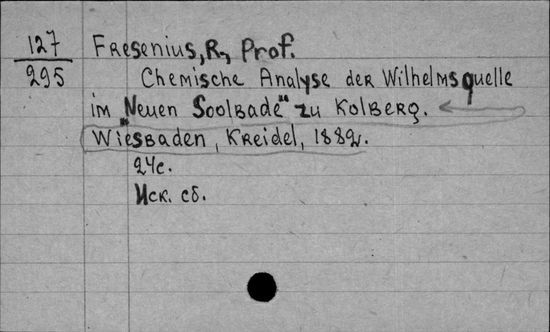 127
295
Fresenius, R., Prof.
Chemische Analyse der Wilhelmsquelle
im „Neuen Soolbade" zu Kolberg.
Wiesbaden, Kreidel, 1882.
24c.
Иск. сб.